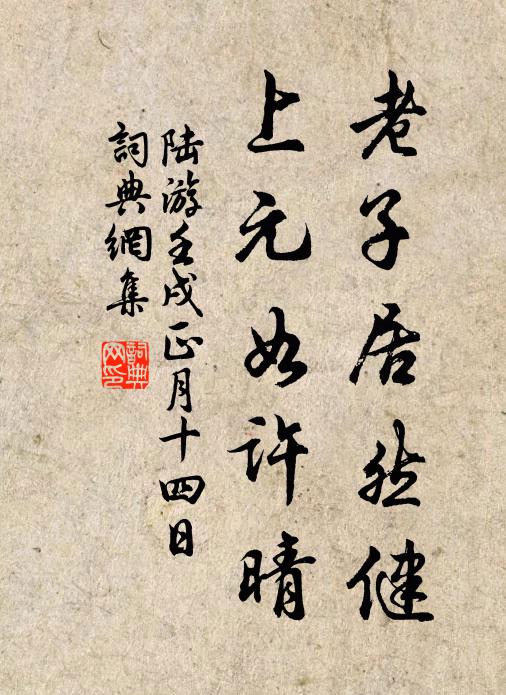 老子居然健
上元如許晴
陸游壬戌正月十四日
詞典網集
詞典网印